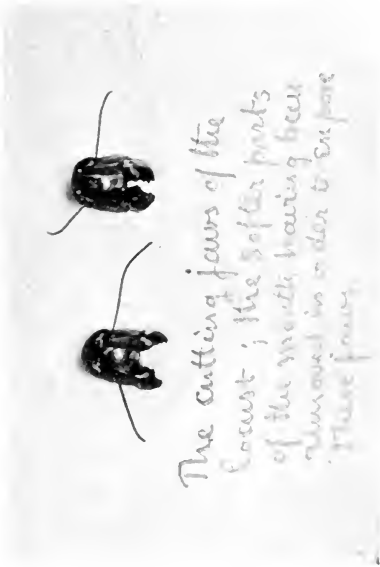 The cutting jaws of the
locust; the softer parts
of the mouth having been
removed in order to expose
these jaws